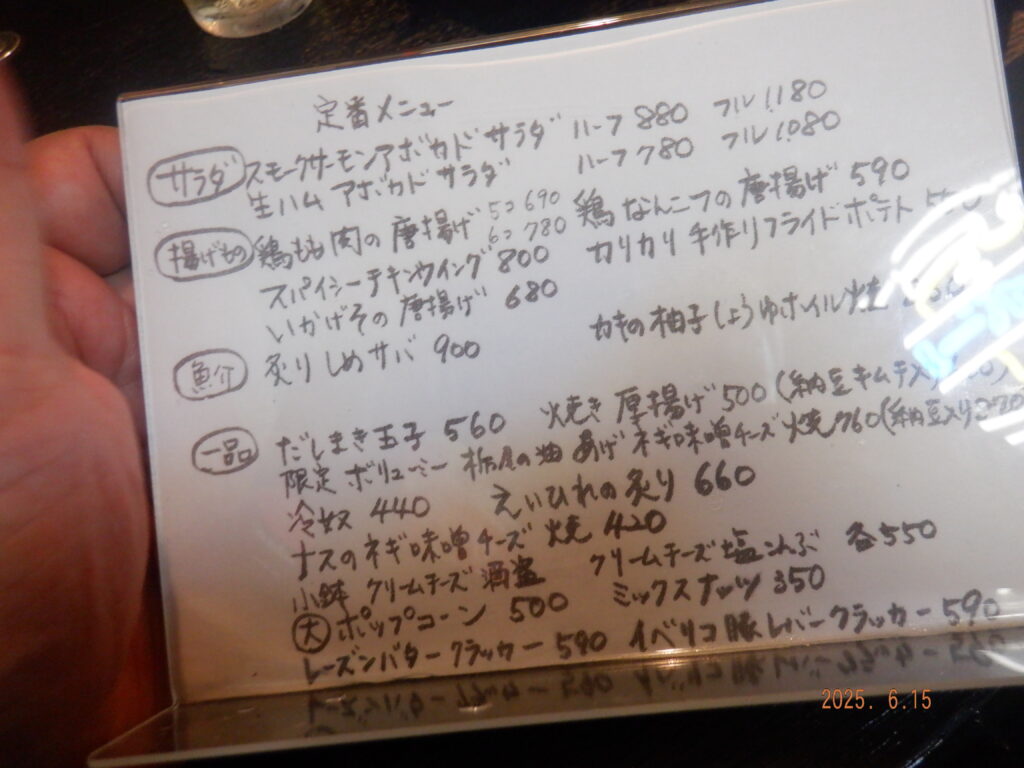 定番メニュー
サラダ スモークサーモンアボカドサラダ ハーフ 880 フル 1.180
生ハムアボカドサラダ ハーフ 780 フル 1.080
揚げもの 鶏もも肉の唐揚げ 5コ 690 6コ 780 鶏なんこつの唐揚げ 590
スパイシーチキンウイング 800 カリカリ手作りフライドポテト
いかげその唐揚げ 680
魚介 炙りしめサバ 900 カキの柚子しょうゆホイル焼
一品 だしまき玉子 560 焼き厚揚げ 500 (納豆キムチ入り
限定 ボリューミー 栃尾の油あげネギ味噌チーズ焼 760 (納豆入り 870
冷奴 440 えいひれの炙り 660
ナスのネギ味噌チーズ焼 420
小鉢 クリームチーズ酒盗 クリームチーズ塩こんぶ 各550
大 ポップコーン 500 ミックスナッツ 350
レーズンバタークラッカー 590 イベリコ豚レバークラッカー 590
2025. 6.15